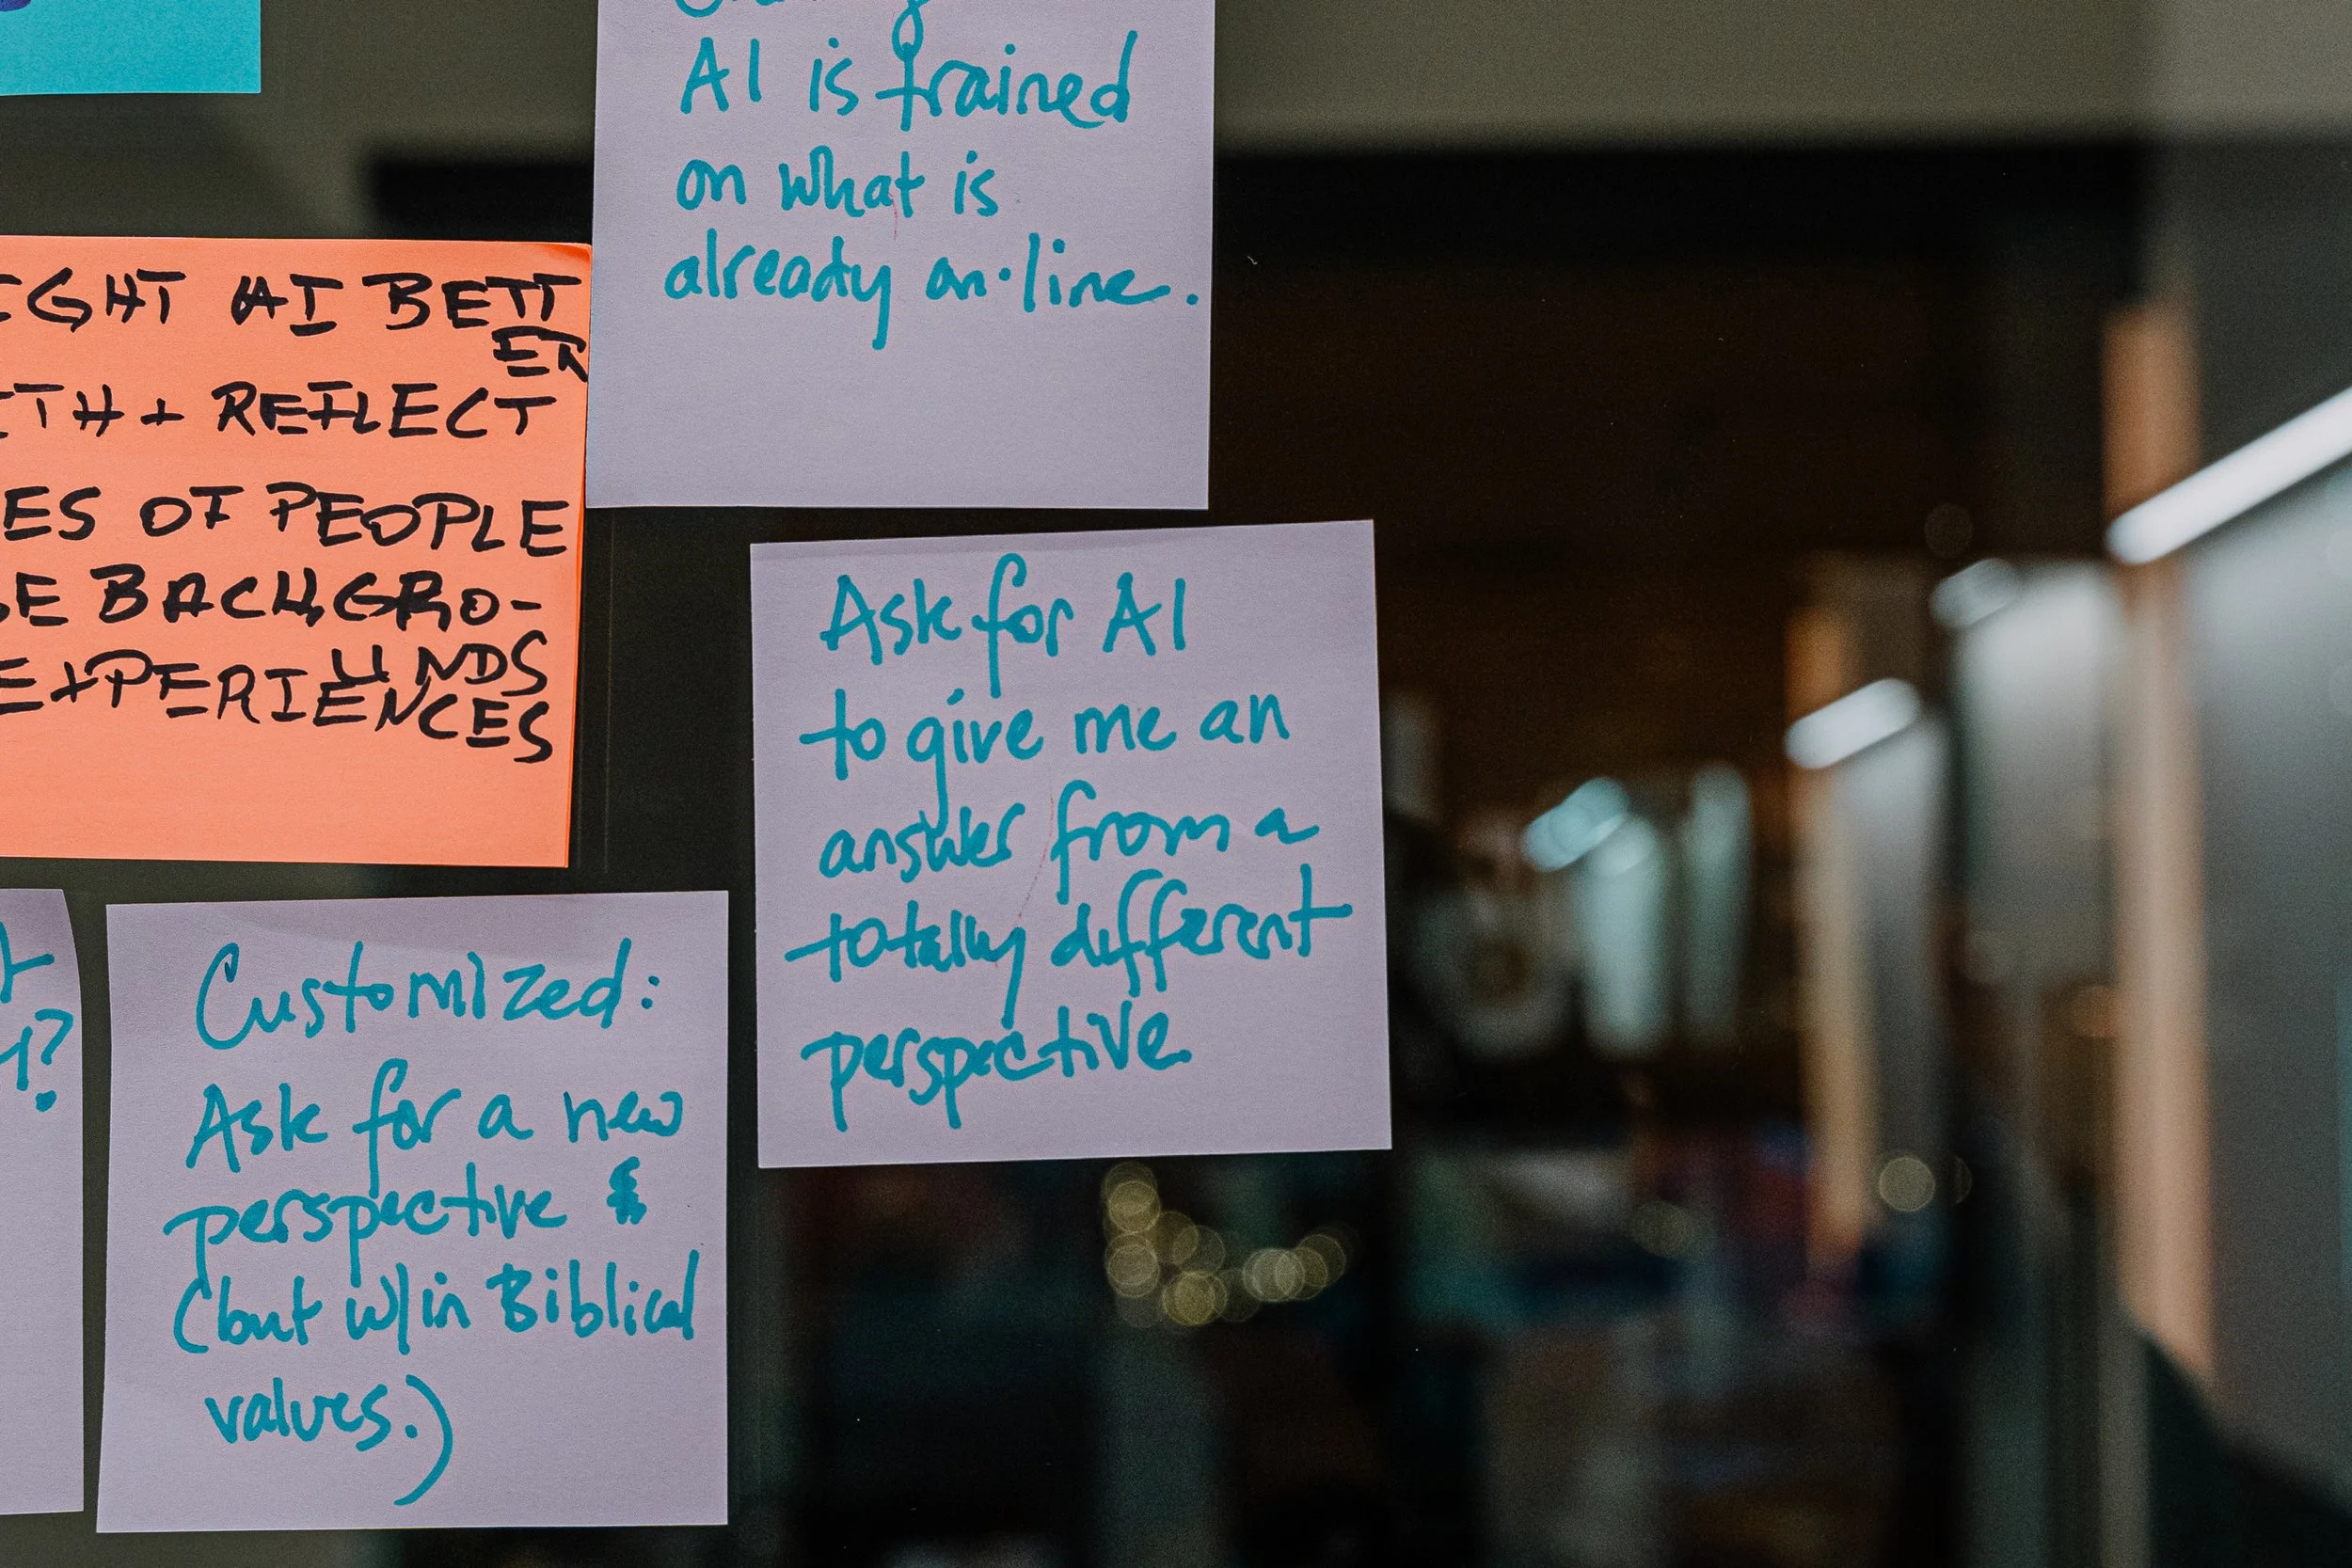 AI is trained
on what is
already on-line.
AI BETT
ER
+ REFLECT
OF PEOPLE
BACKGRO-
UNDS
EXPERIENCES
Ask for AI
to give me an
answer from a
totally different
perspective
Customized:
Ask for a new
perspective &
(but w/in Biblical
values.)